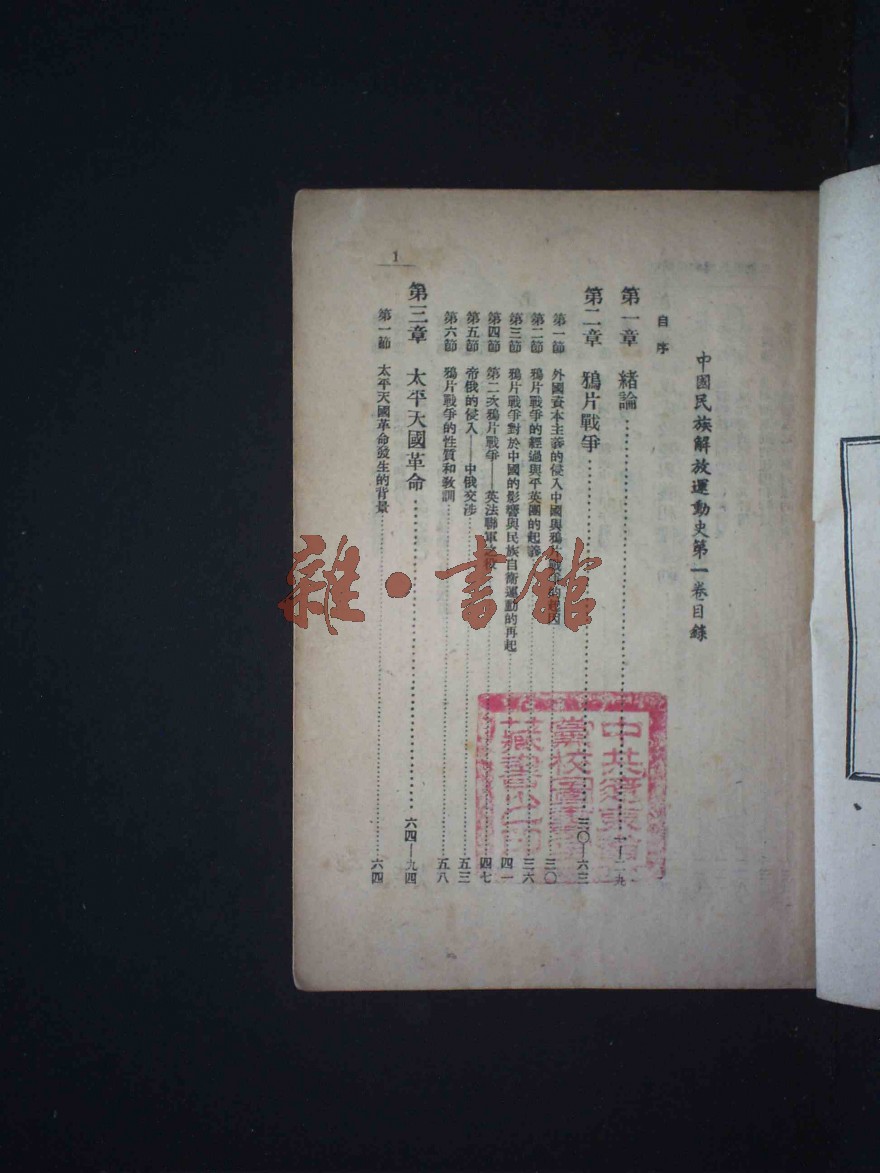 中國民族解放運動史第一卷目錄
自序
第一章 緒論…………一—二九
第二章 鴉片戰爭…………三〇—六三
第一節 外國資本主義的侵入中國與鴉片戰爭的起因…………三〇
第二節 鴉片戰爭的經過與平英團的起義…………三六
第三節 鴉片戰爭對於中國的影響與民族自衛運動的再起…………四一
第四節 第二次鴉片戰爭——英法聯軍之役…………四七
第五節 帝俄的侵入——中俄交涉…………五三
第六節 鴉片戰爭的性質和教訓…………五八
第三章 太平天國革命…………六四—九四
第一節 太平天國革命發生的背景…………六四
1
雜·書館
中共遼東
黨校圖
藏書之